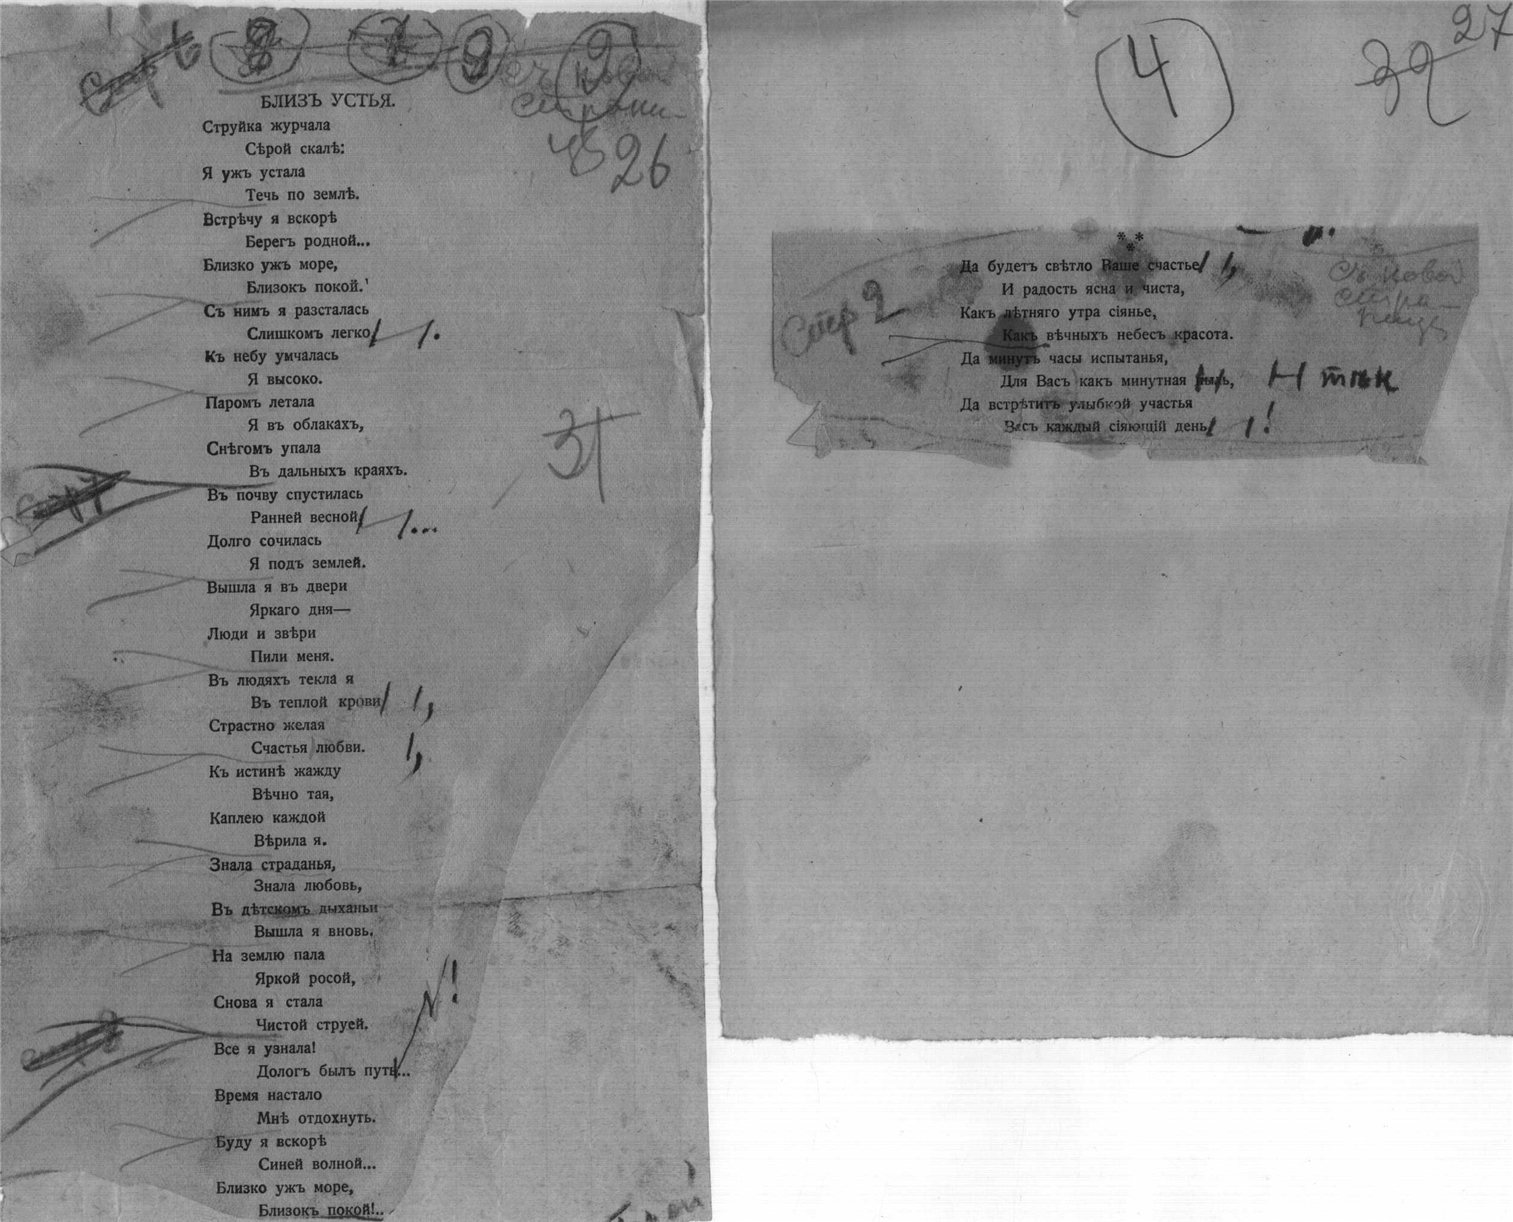 8
7
9
9
Съ новой
страни-
цы
26
БЛИЗЪ УСТЬЯ.
Струйка журчала
Сѣрой скалѣ:
Я ужъ устала
Течь по землѣ.
Встрѣчу я вскорѣ
Берегъ родной...
Близко ужъ море,
Близокъ покой.
Съ нимъ я разсталась
Слишкомъ легко .
Къ небу умчалась
Я высоко.
Паромъ летала
Я въ облакахъ,
Снѣгомъ упала
Въ дальныхъ краяхъ.
31
Въ почву спустилась
Ранней весной ...
Долго сочилась
Я подъ землей.
Вышла я въ двери
Яркаго дня—
Люди и звѣри
Пили меня.
Въ людяхъ текла я
Въ теплой крови ,
Страстно желая
Счастья любви. ,
Къ истинѣ жажду
Вѣчно тая,
Каплею каждой
Вѣрила я.
Знала страданья,
Знала любовь,
Въ дѣтскомъ дыханьи
Вышла я вновь.
На землю пала
Яркой росой,
Снова я стала
Чистой струей.
Все я узнала!
Дологъ былъ путь... !
Время настало
Мнѣ отдохнуть.
Буду я вскорѣ
Синей волной...
Близко ужъ море,
Близокъ покой!..
4
32
27
***
Стр 2
Съ новой
стра-
ницы
Да будетъ свѣтло Ваше счастье ,
И радость ясна и чиста,
Какъ лѣтняго утра сіянье,
Какъ вѣчныхъ небесъ красота.
Да минутъ часы испытанья,
Для Васъ какъ минутная пыль, Н тѣнь
Да встрѣтитъ улыбкой участья
Васъ каждый сіяющій день !